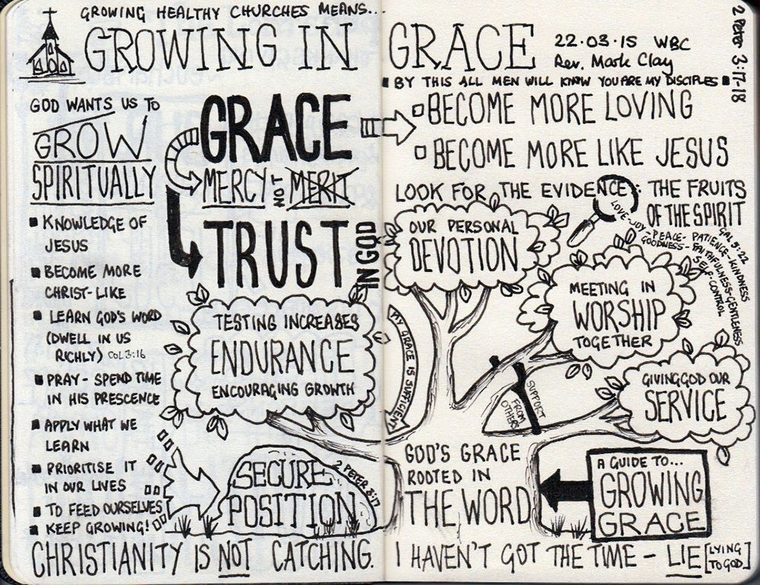 GROWING HEALTHY CHURCHES MEANS...
GROWING IN GRACE
22.03.15 WBC
Rev. Mark Clay
2 Peter 3:17-18
GOD WANTS US TO
GROW
SPIRITUALLY
KNOWLEDGE OF
JESUS
BECOME MORE
CHRIST-LIKE
LEARN GOD'S WORD
(DWELL IN US
RICHLY) COL 3:16
PRAY - SPEND TIME
IN HIS PRESCENCE
APPLY WHAT WE
LEARN
PRIORITISE IT
IN OUR LIVES
TO FEED OURSELVES
KEEP GROWING!
GRACE
MERCY NOT MERIT
TRUST
IN GOD
TESTING INCREASES
ENDURANCE
ENCOURAGING GROWTH
SECURE
POSITION
2 PETER 3:17
CHRISTIANITY IS NOT CATCHING.
BY THIS ALL MEN WILL KNOW YOU ARE MY DISCIPLES
BECOME MORE LOVING
BECOME MORE LIKE JESUS
LOOK FOR THE EVIDENCE: THE FRUITS
OF THE SPIRIT
GAL 5:22
LOVE-JOY-PEACE-PATIENCE-KINDNESS
GOODNESS-FAITHFULNESS-GENTLENESS
SELF-CONTROL
OUR PERSONAL
DEVOTION
MEETING IN
WORSHIP
TOGETHER
GIVING GOD OUR
SERVICE
MY GRACE IS SUFFICIENT
SUPPORT
FROM
OTHERS
GOD'S GRACE
ROOTED IN
THE WORD
A GUIDE TO...
GROWING
GRACE
I HAVEN'T GOT THE TIME - LIE [LYING
TO GOD]